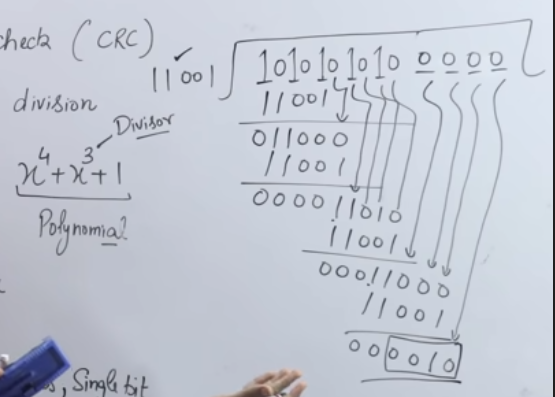 check (CRC)
division
Divisor
x⁴+x³+1
Polynomial
11001 1010101010 0000
11001
011000
11001
0000 11010
11001
00011000
11001
000010
, Single bit